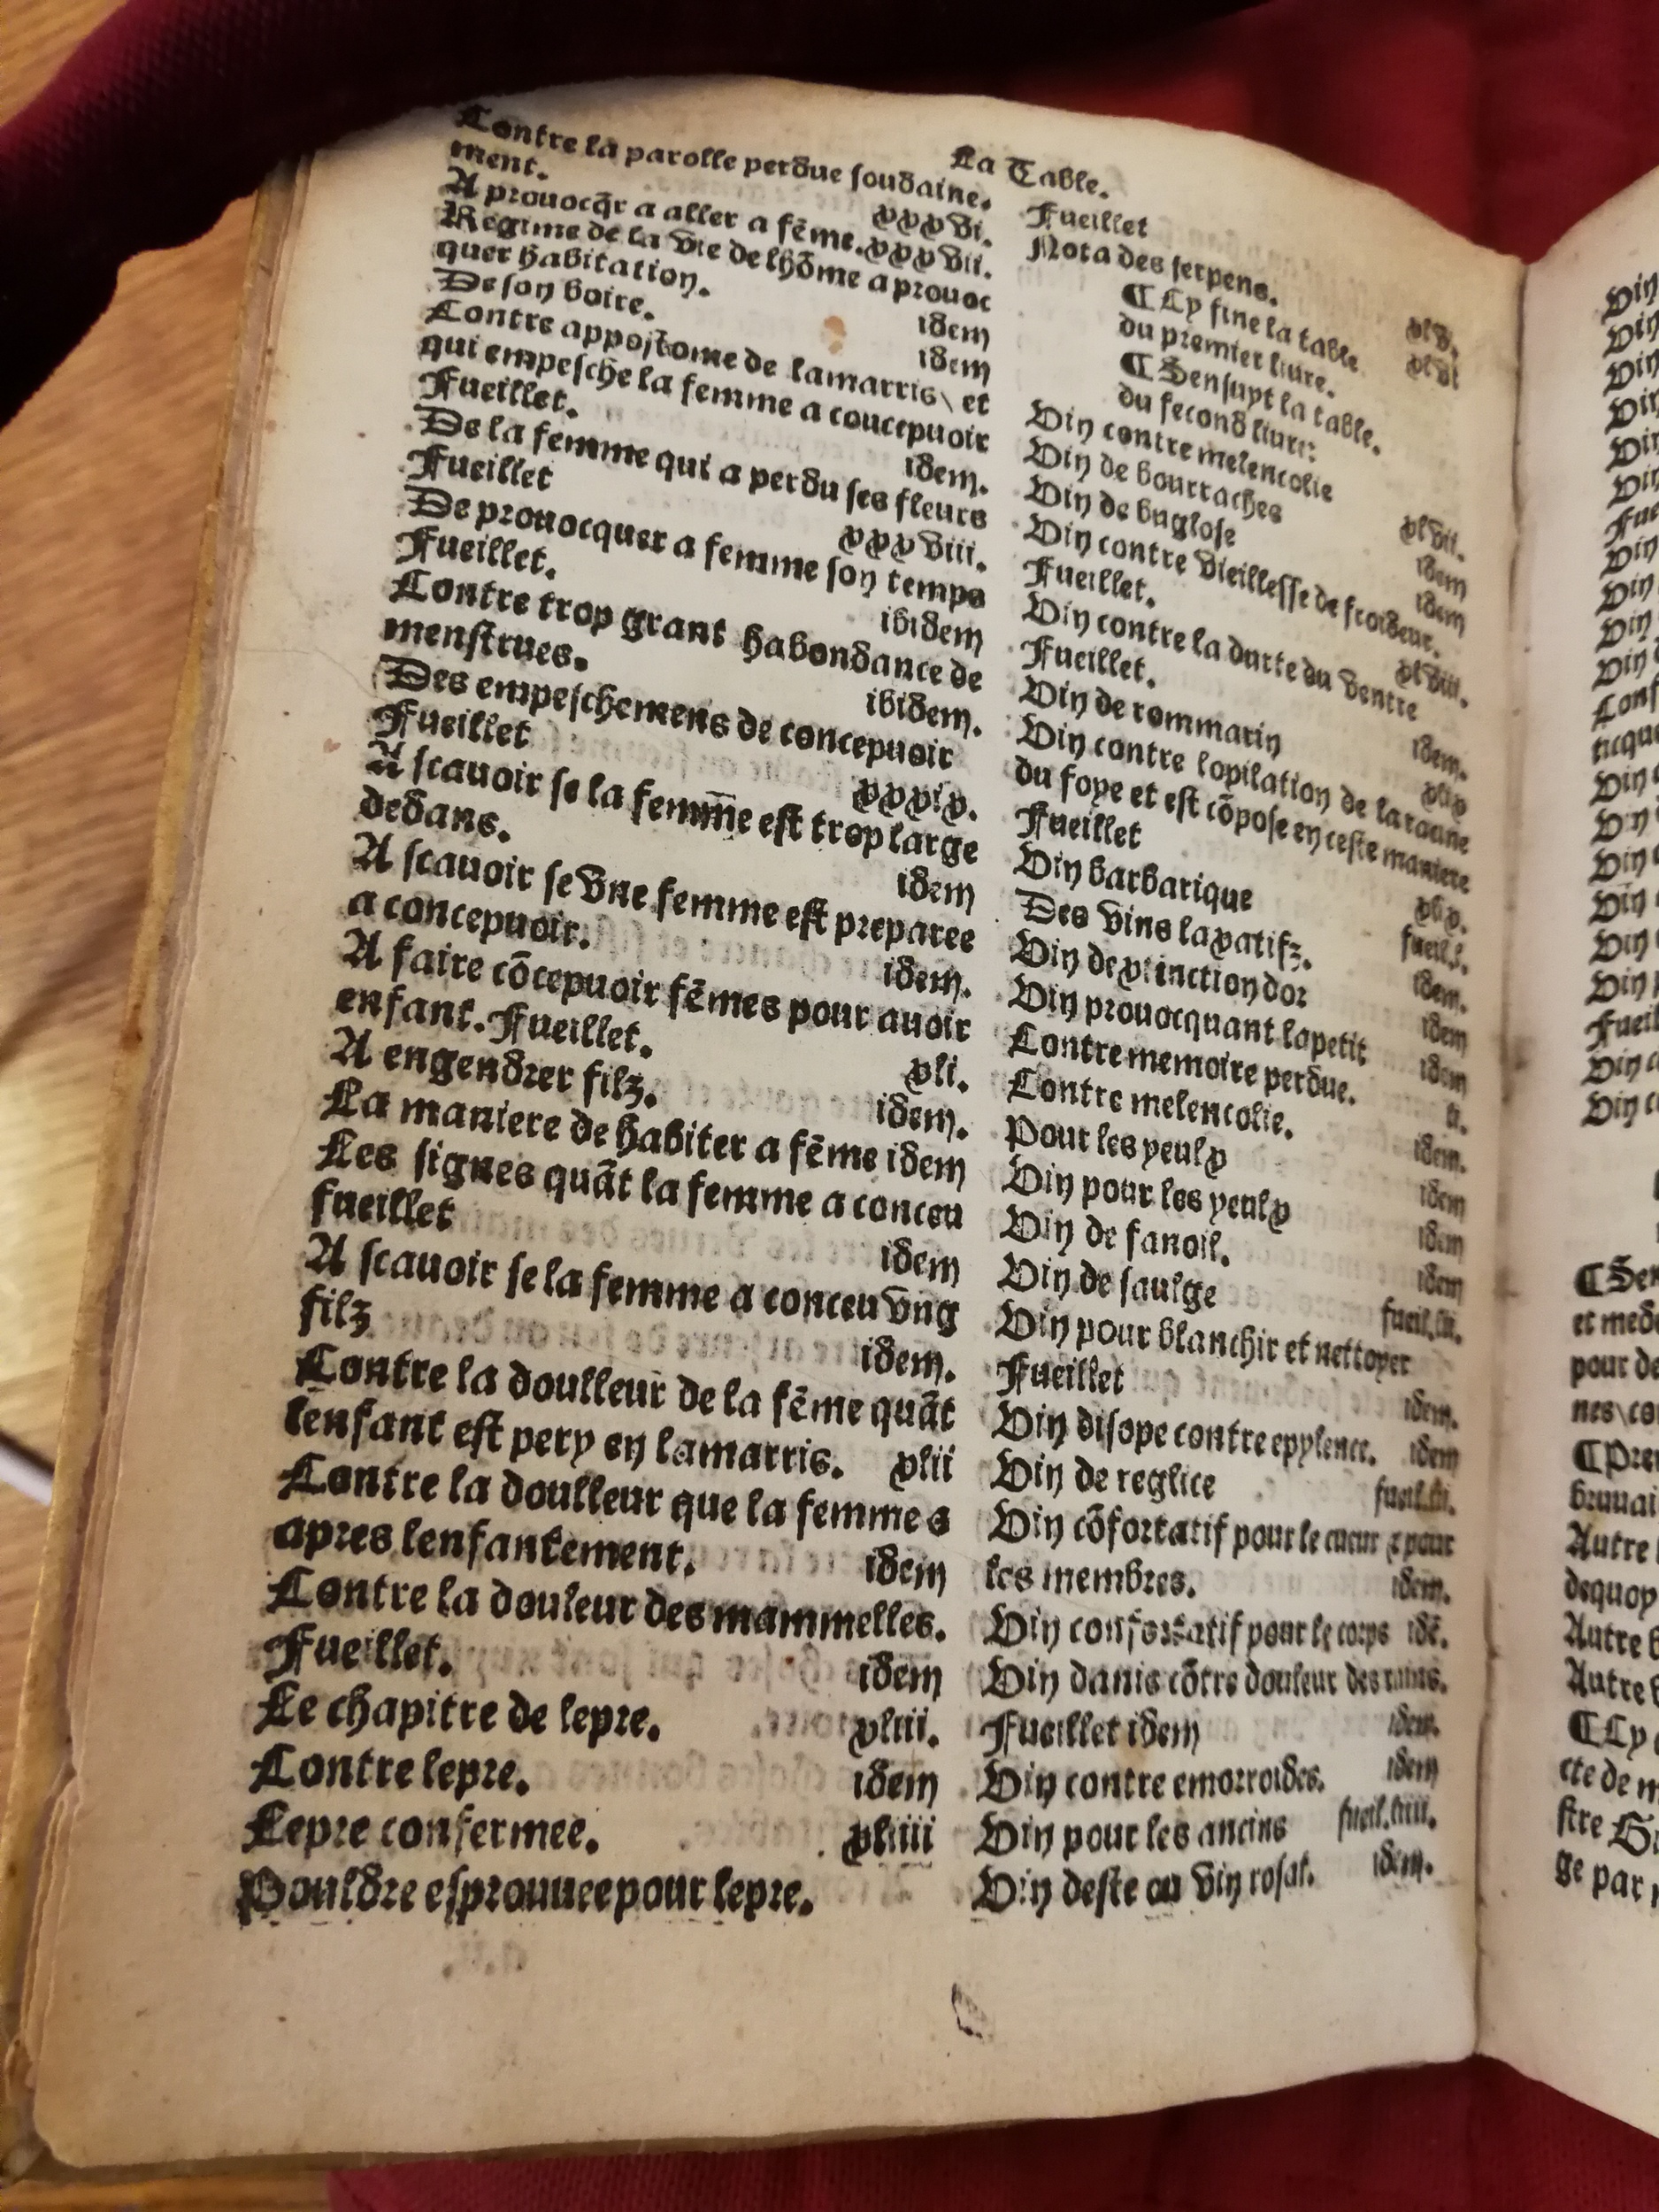 La Table.
Contre la parolle perdue soudaine.
ment. xxxvi.
A prouocq̃r a aller a fẽme. xxxvii.
Regime de la vie de lhõme a prouoc
quer habitation. idem
De son boire. idem
Contre appostome de lamarris\ et
qui empesche la femme a concepuoir
Fueillet. idem.
De la femme qui a perdu ses fleurs
Fueillet xxxviii.
De prouocquer a femme son temps
Fueillet. ibidem
Contre trop grant habondance de
menstrues. ibidem.
Des empeschemens de concepuoir
Fueillet xxxix.
A scauoir se la femm̃e est trop large
dedans. idem
A scauoir se vne femme est preparee
a concepuoir. idem.
A faire cõcepuoir fẽmes pour auoir
enfant. Fueillet. xli.
A engendrer filz. idem.
La maniere de habiter a fẽme idem
Les signes quãt la femme a conceu
fueillet idem
A scauoir se la femme a conceu vng
filz idem.
Contre la doulleur de la fẽme quãt
lenfant est pery en lamarris. xlii
Contre la doulleur que la femme a
apres lenfantement. idem
Contre la douleur des mammelles.
Fueillet. idem
Le chapitre de lepre. xliii.
Contre lepre. idem
Lepre confermee. xliiii
Pouldre esprouuee pour lepre.
Fueillet xlv.
Nota des serpens. xlvi
¶ Cy fine la table
du premier liure.
¶ Sensuyt la table.
du second liure:
Vin contre melencolie xlvii.
Vin de bourraches idem
Vin de buglose idem
Vin contre vieillesse de froideur.
Fueillet. xlviii.
Vin contre la durte du ventre
Fueillet. idem.
Vin de rommarin xlix
Vin contre lopilation de la racine
du foye et est cõpose en ceste maniere
Fueillet xlix.
Vin barbarique fueil.l.
Des vins laxatifz. idem.
Vin dextinction dor idem
Vin prouocquant lapetit idem
Contre memoire perdue. li.
Contre melencolie. idem.
Pour les yeulx idem
Vin pour les yeulx idem
Vin de fanoil. idem
Vin de saulge fueil.lii.
Vin pour blanchir et nettoyer
Fueillet idem.
Vin disope contre epylence. idem
Vin de reglice fueil.lii.
Vin cõfortatif pour le cueur ⁊ pour
les membres. idem.
Vin confortatif pour le corps idẽ.
Vin danis cõtre douleur des rains.
Fueillet idem idem.
Vin contre emorroides. idem
Vin pour les anciens fueil.liiii.
Vin deste ou vin rosat. idem.